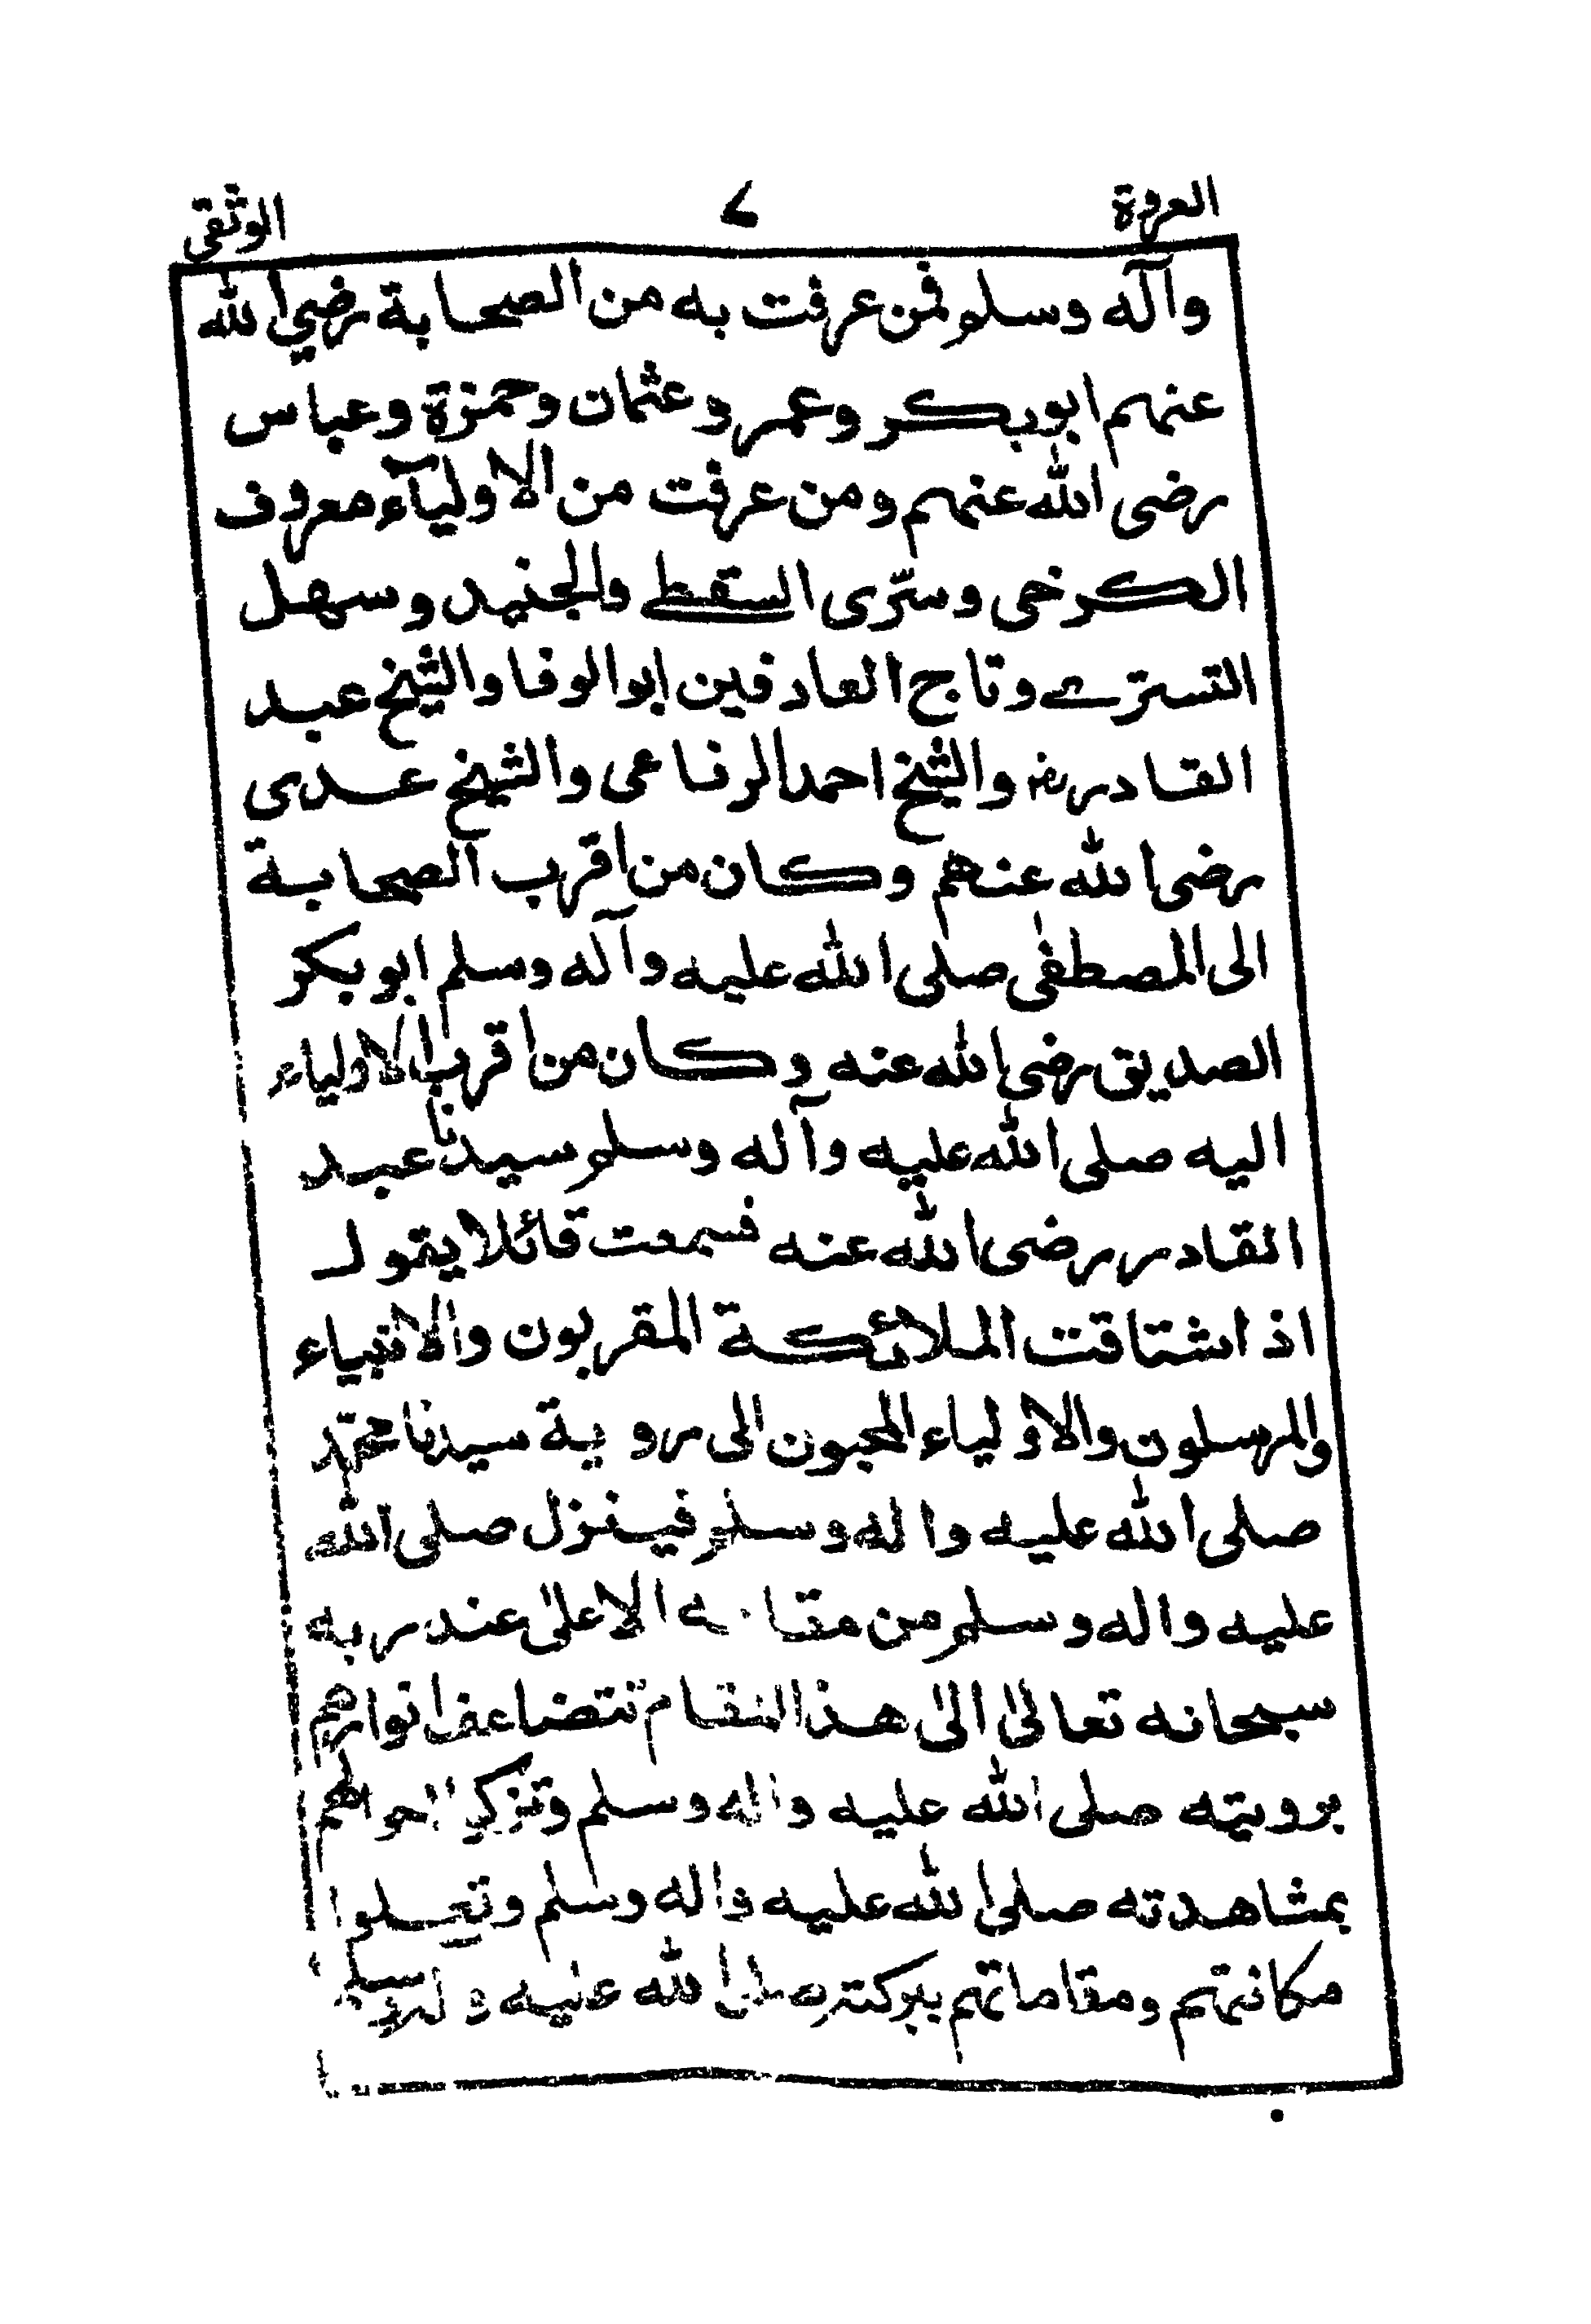 العروة ٧ الوثقى
وآله وسلم فمن عرفت به من الصحابة رضي الله
عنهم ابو بكر وعمر وعثمان وحمزة وعباس
رضى الله عنهم ومن عرفت من الاوليآء معروف
الكرخى وسرّى السقطے والجنيد وسهل
التسترے وتاج العارفين ابوالوفا والشيخ عبد
القادر رضہ والشيخ احمد الرفاعى والشيخ عدى
رضى الله عنهم وكان من اقرب الصحابة
الى المصطفٰى صلى الله عليه وآله وسلم ابو بكر
الصديق رضى الله عنه وكان من اقرب الاولياء
اليه صلى الله عليه وآله وسلم سيدنا عبد
القادر رضى الله عنه فسمعت قائلا يقول
اذ اشتاقت الملائكة المقربون والانبياء
والمرسلون والاولياء المحبون الى روية سيدنا محمّد
صلى الله عليه واله وسلم فينزل صلى الله
عليه واله وسلم من مقامه الاعلىٰ عند ربه
سبحانه تعالىٰ الىٰ هذا المقام تتضاعف انوارهم
برويته صلى الله عليه واله وسلم وتزكى احوالهم
بمشاهدته صلى الله عليه واله وسلم وتعلوا
مكانتهم ومقاماتهم ببركته صلى الله عليه وسلم